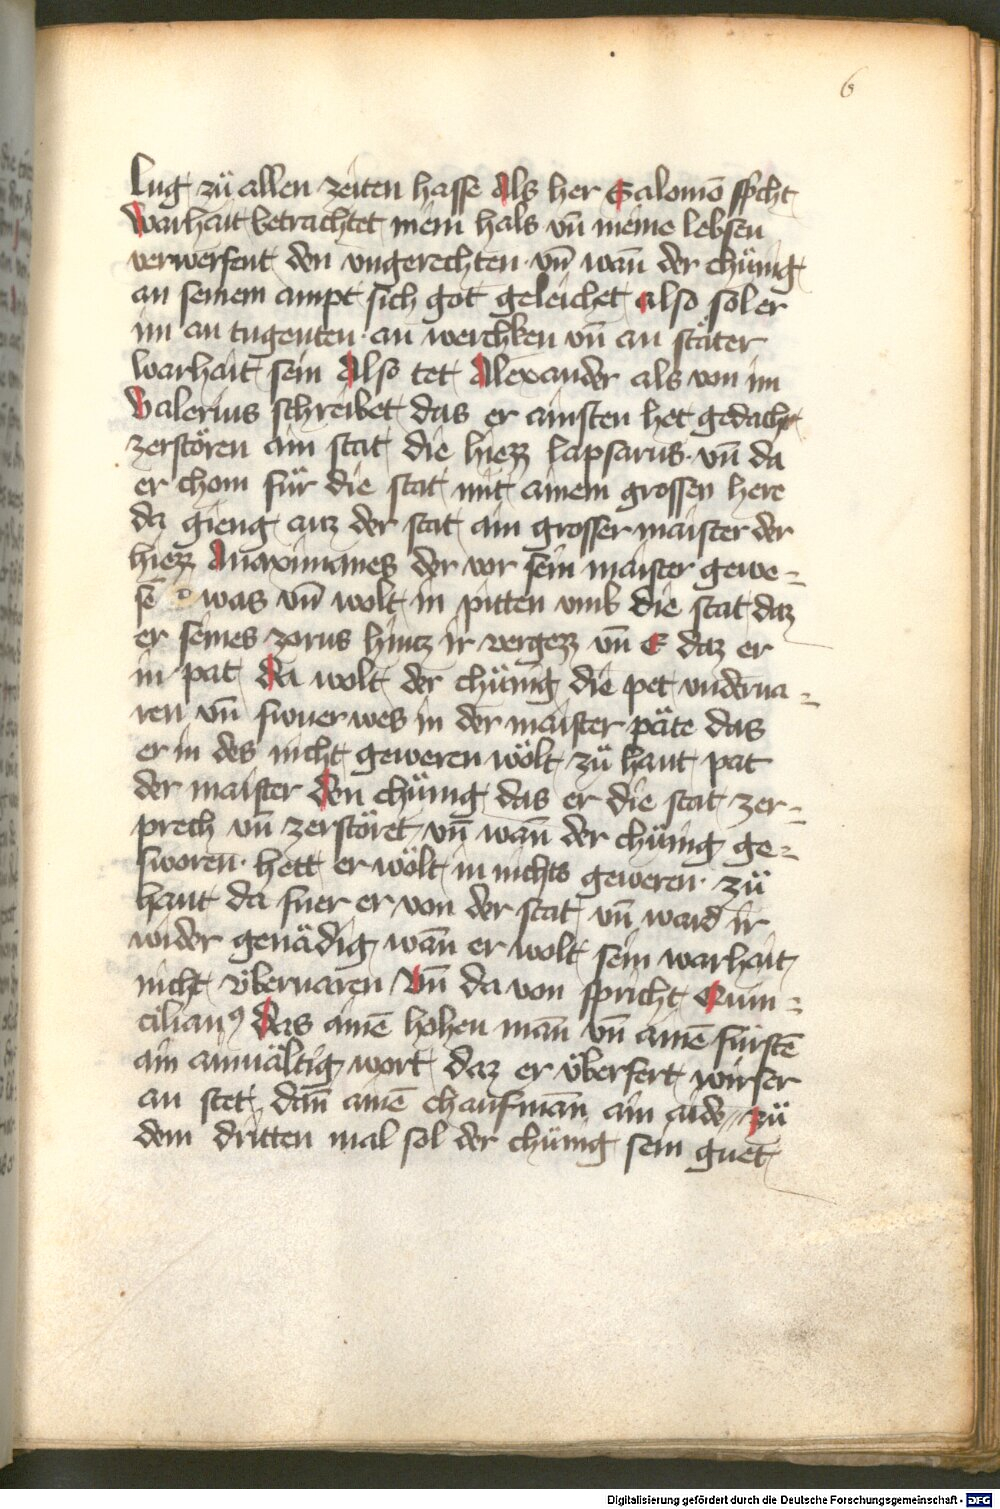 6
Lug zü allen zeiten hasse Als her Salomō spͥcht
Warhait betrachtet mein hals vn̄ meine lebsen
verwerfent den vngerechten · vn̄ wan̄ der chünig
an seinem ampt sich got geleichet also sol er
im an tugenten · an werchken vn̄ an stäter
warhait sein Also tet Alexander als von im
Valerius schreibet das er ainsten het gedacht
zerstören ain stat die hiezz lapsarus · vn̄ da
er chom für die stat mit ainem grossen here
da gieng auz der stat ain grosser maister der
hiezz Anaximanes der vor sein maister gewe-
sē was vn̄ wolt in pitten vmb die stat daz
er seines zorns hintz ir vergezz vn̄ E daz er
in pat da wolt der chünig die pet vnderua-
ren vn̄ swuer wes in der maister päte das
er in des nicht geweren wölt zü hant pat
der maister den chünig das er die stat zer-
prech vn̄ zerstöret vn̄ wan̄ der chünig ge-
sworen · hett er wölt in nichts geweren · zü
hant da fuer er von der stat vn̄ ward ir
wider genädig wan̄ er wolt sein warhait
nicht überuaren Vn̄ da von spricht Quin-
cilianꝰ Das ainē hohen man̄ vn̄ ainē fürstē
ain ainuältig wort daz er überfert wirser
an stet dan̄ ainē chaufman̄ ain aide zü
dem dritten mal sol der chünig sein guet
Digitalisierung gefördert durch die Deutsche Forschungsgemeinschaft - DFG